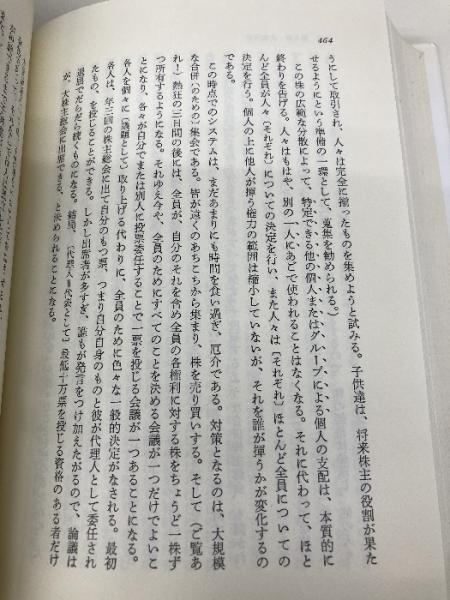 464
うにして取引され、人々は完全に揃ったものを集めようと試みる。子供達は、将来株主の役割が果た
せるようにという準備の一環として、蒐集を勧められる。）
この株の広範な分散によって、特定できる他の個人またはグループによる個人の支配は、本質的に
終わりを告げる。人々はもはや、別の一人にあごで使われることはなくなる。それに代わって、ほと
んど全員が人々〔それぞれ〕についての決定を行い、また人々は〔それぞれ〕ほとんど全員についての
決定を行う。個人の上に他人が揮う権力の範囲は縮小していないが、それを誰が揮うかが変化するの
である。
この時点でのシステムは、まだあまりにも時間を食い過ぎ、厄介である。対策となるのは、大規模
な合併〔のための〕集会である。皆が遠くのあちこちから集まり、株を売り買いする。そして（ご覧あ
れ！）熱狂の三日間の後には、全員が、自分のそれを含め全員の各権利に対する株をちょうど一株ず
つ所有するようになる。それゆえ今や、全員のためにすべてのことを決める会議が一つだけでよいこ
とになり、各々が自分でまたは別人に投票委任することで一票を投じる会議が一つあることになる。
各人を個々に〔議題として〕取り上げる代わりに、全員のために色々な一般的決定がなされる。最初
各人は、年三回の株主総会に出て自分のもつ、つまり自分自身のものと彼が代理人として委任され
たもの、を投じることができる。しかし出席者が多すぎ、誰もが発言をつけ加えたがるので、論議は
退屈でだらだら続くものになる。結局、〔代理人＝代表として〕最低十万票を投じる資格のある者だけ
が、大株主総会に出席できる、と決められることになる。